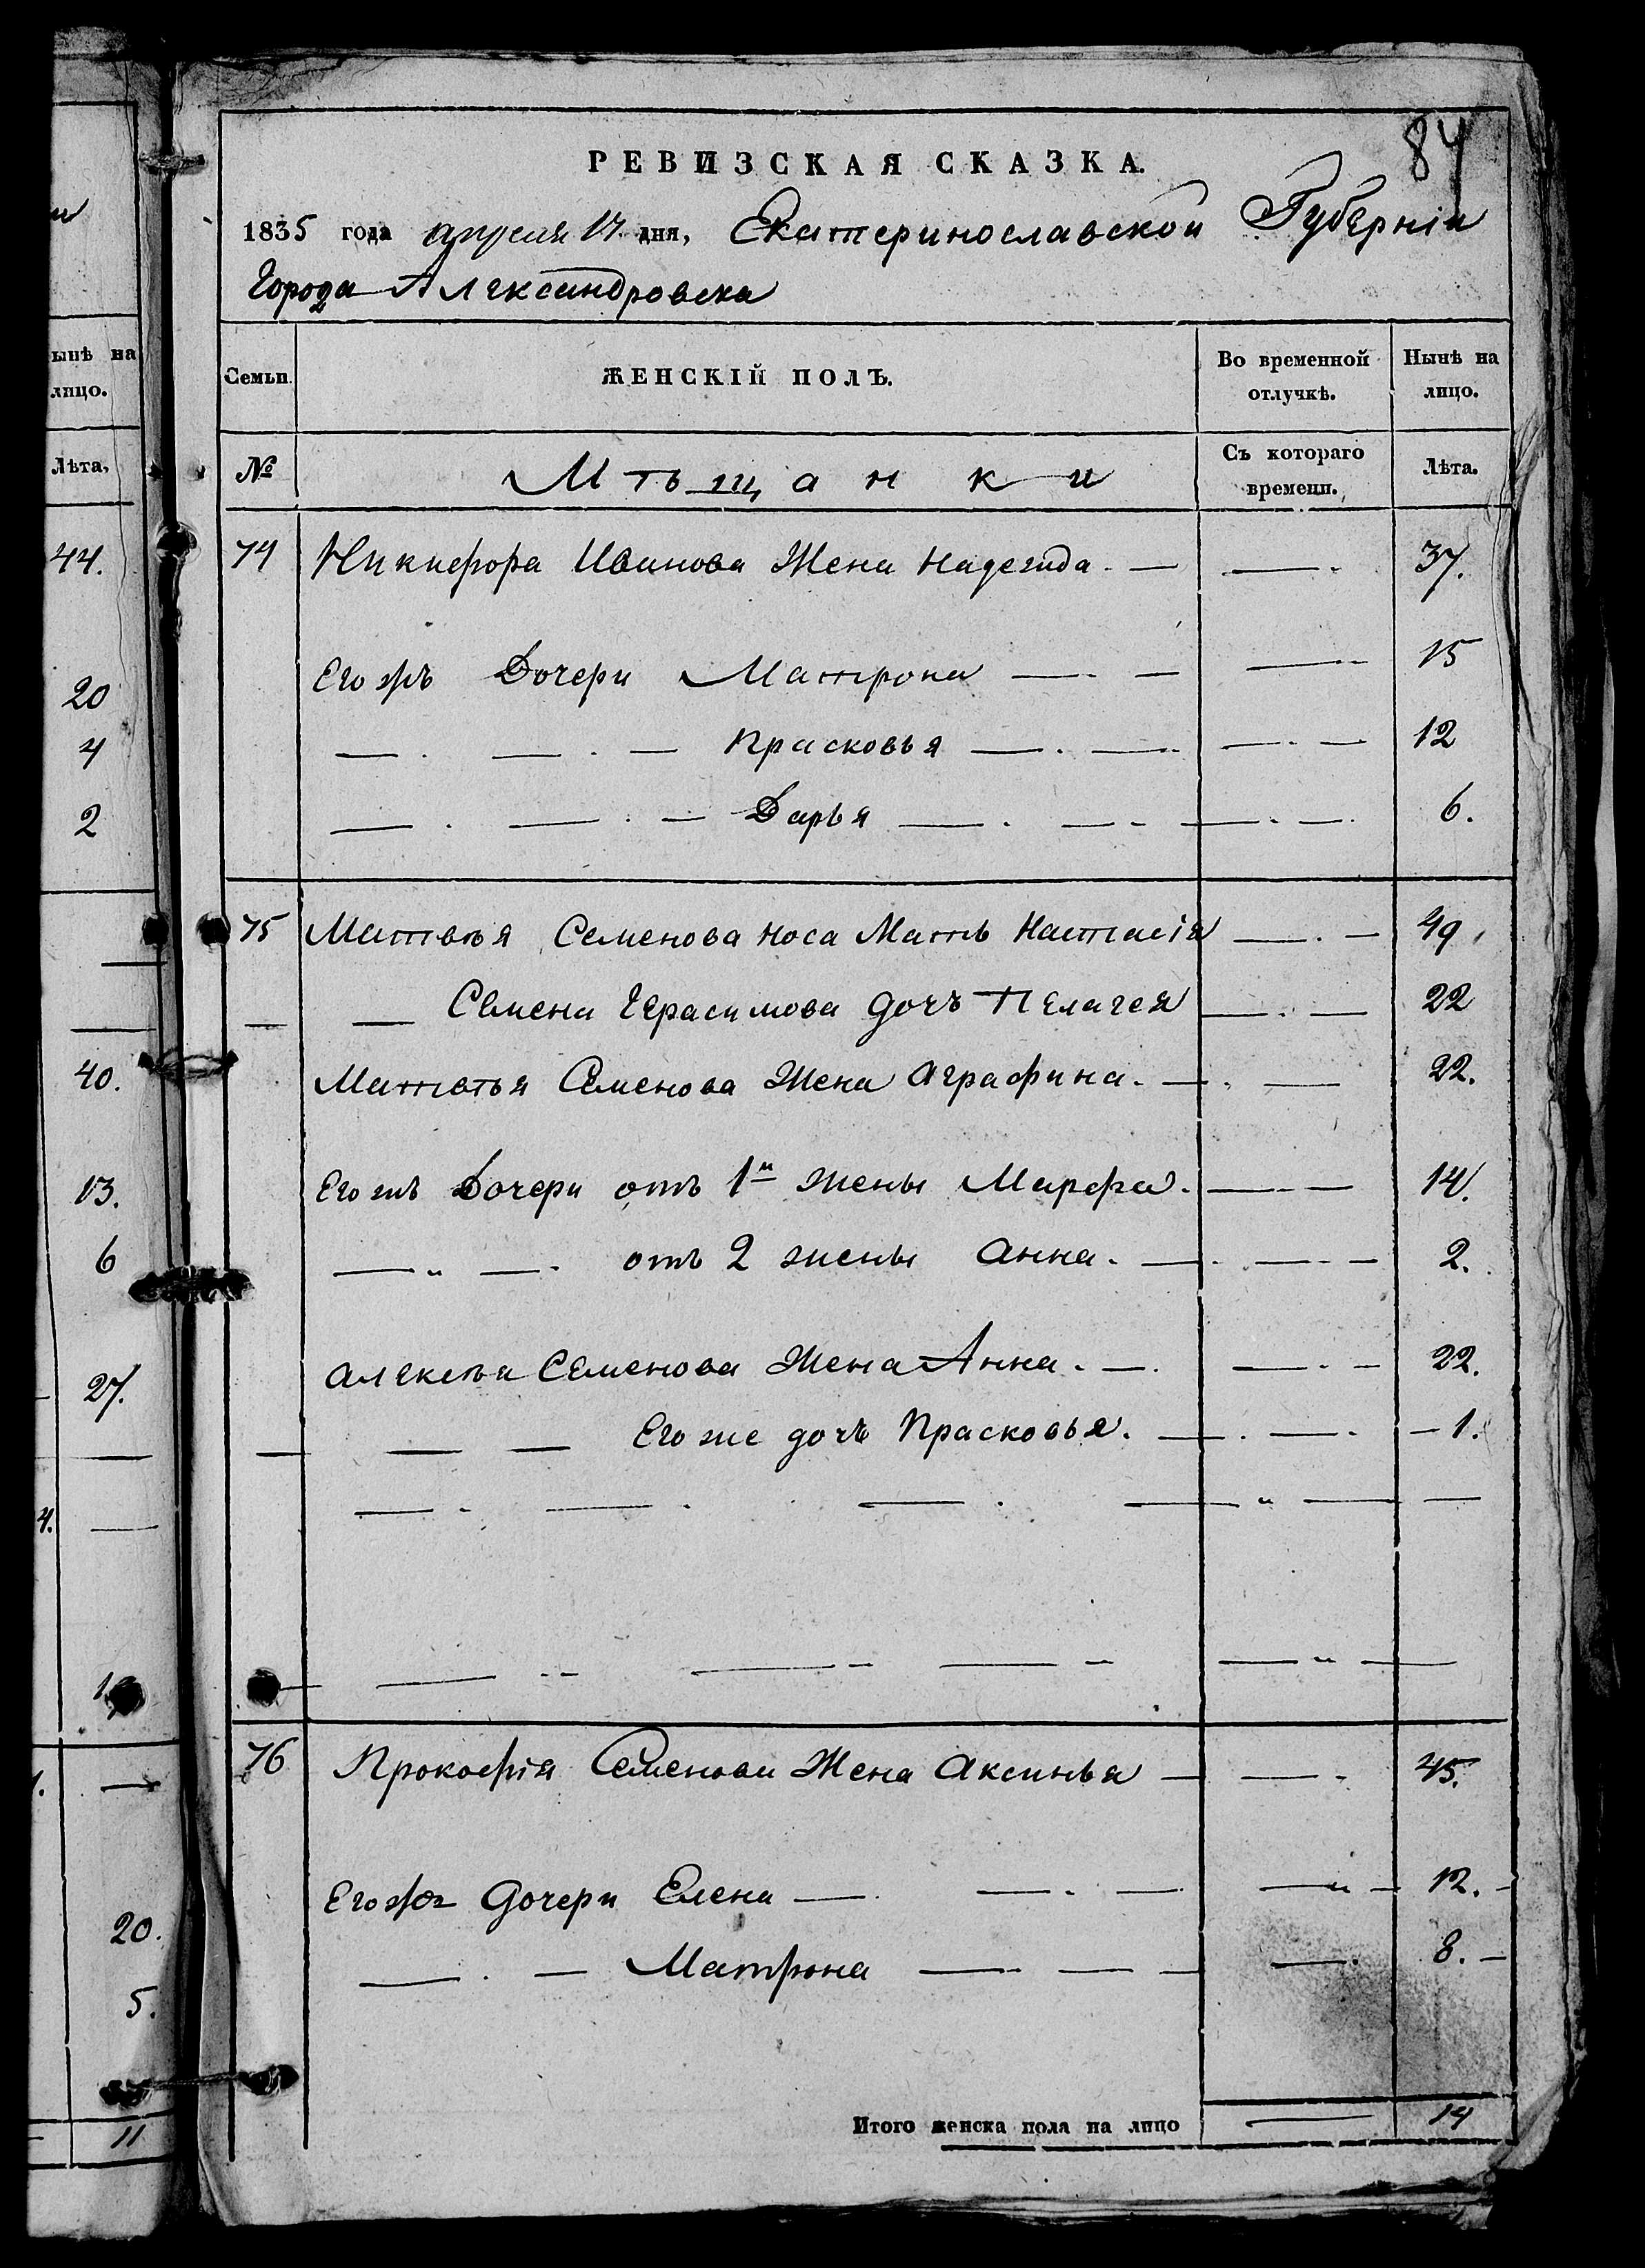 84
РЕВИЗСКАЯ СКАЗКА.
1835 года апреля 17 дня, Екатеринославской Губерніи
Города Александровска
ынѣ на лицо.
Семьи. ЖЕНСКІЙ ПОЛЪ. Во временной отлучкѣ. Нынѣ на лицо.
Лѣта,
№ Мѣщанки Съ котораго времени. Лѣта.
44.
20
4
2
40.
13.
6
27.
4.
1
1.
20.
5.
11
74 Никифора Иванова Жена Надежда. — 37.
Его жъ Дочери Матрона — 15
— Прасковья — 12
— Дарья — 6.
75 Матвѣя Семенова Носа Мать Настасія — 49
— Семена Герасимова дочь Пелагея — 22
Матвѣя Семенова Жена Аграфина. — 22.
Его жъ Дочери отъ 1й жены Марфа. — 14.
— отъ 2 жены Анна. — 2.
Алексѣя Семенова Жена Анна. — 22.
— Его же дочь Прасковья. — 1.
76 Прокофія Семенова Жена Аксинья — 45.
Его жъ дочери Елена — 12.
— Матрона — 8.
Итого женска пола на лицо — 14